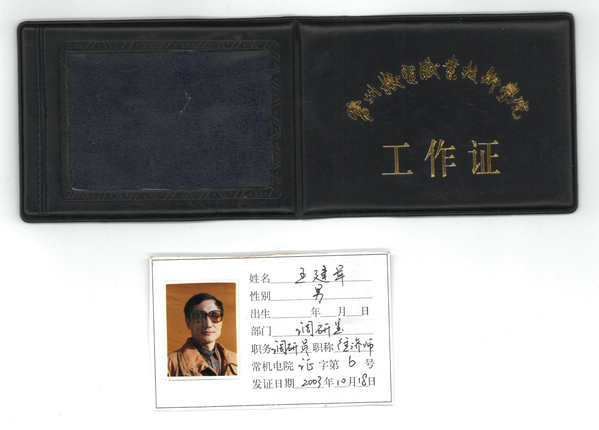 常州机电职业技术学院
工作证
姓名 王建华
性别 男
出生 年 月 日
部门 调研室
职务 调研员 职称 经济师
常机电院 证 字第 6 号
发证日期 2003 年 10 月 18 日